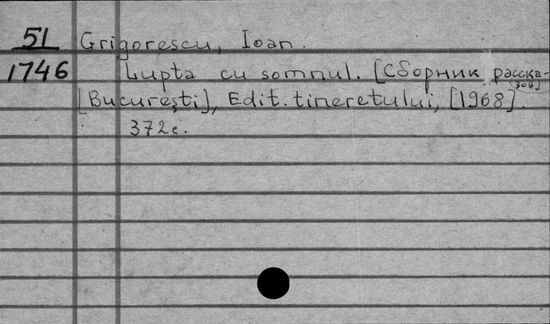 51 Grigorescu, Ioan.
1746 Lupta cu somnul. [Сборник расска-
зов]
[Bucureşti], Edit. tineretului, [1968].
372 с.